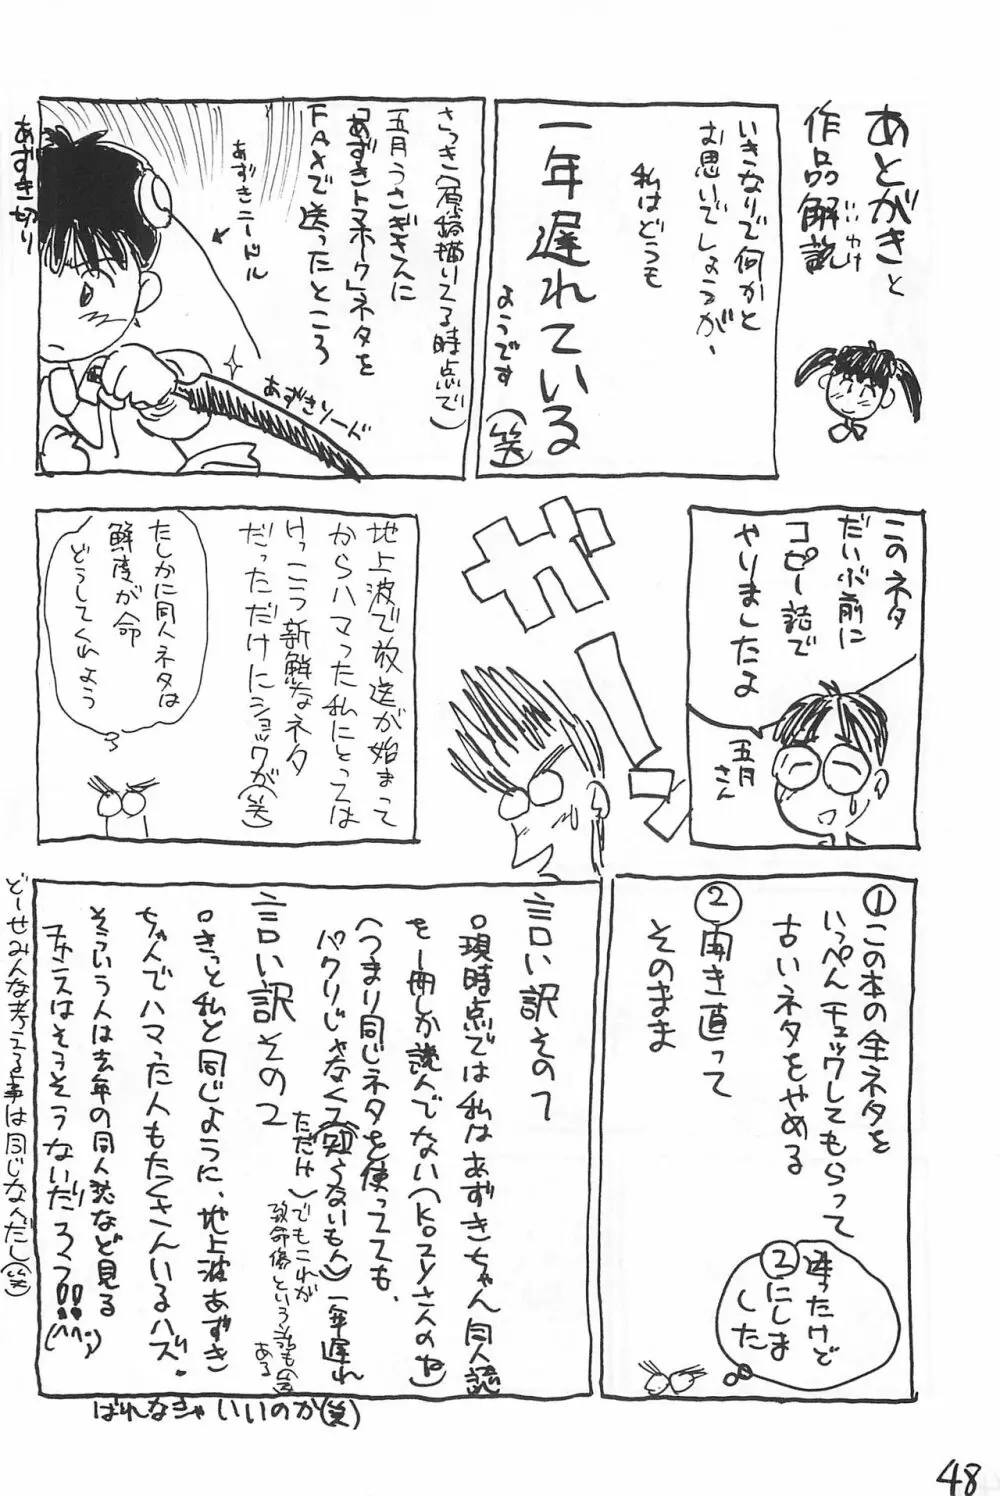 あとがきと
作品解説
いいわけ
いきなりで何かと
お思いでしょうが、
私はどうも
一年遅れている
ようです
(笑)
さっき(原稿描いてる時点で)
五月うさぎさんに
「あずきトマホーク」ネタを
FAXで送ったところ
あずきニードル
あずきソード
あずき切り
このネタ
だいぶ前に
コピー誌で
やりましたよ
五月さん
ガーン
地上波で放送が始まって
からハマった私にとっては
けっこう新鮮なネタ
だっただけにショックが(笑)
たしかに同人ネタは
鮮度が命
どうしてくれよう
①この本の全ネタを
いっぺんチェックしてもらって
古いネタをやめる
②開き直って
そのまま
迷ったけど
②にしま
した
言い訳その1
▫現時点では私はあずきちゃん同人誌
を一冊しか読んでない(KOZYさんのね)
(つまり同じネタを使ってても、
パクリじゃなくて知らないもん)一年遅れ
ただけ)でもこれが
致命傷という説もの(笑)
ある
言い訳その2
▫きっと私と同じように、地上波あずき
ちゃんでハマった人もたくさんいるハズ。
そういう人は去年の同人誌など見る
チャンスはそうそうないだろう!!(^^;)
どーせみんな考える事は同じなんだし(笑)
ばれなきゃいいのか(笑)
48